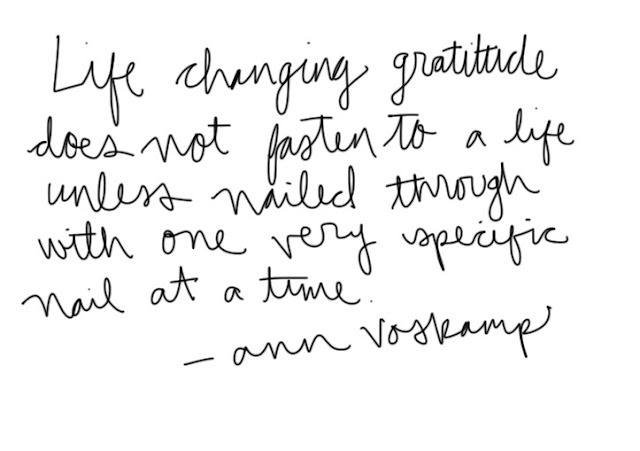 Life changing gratitude
does not fasten to a life
unless nailed through
with one very specific
nail at a time.
- ann Voskamp